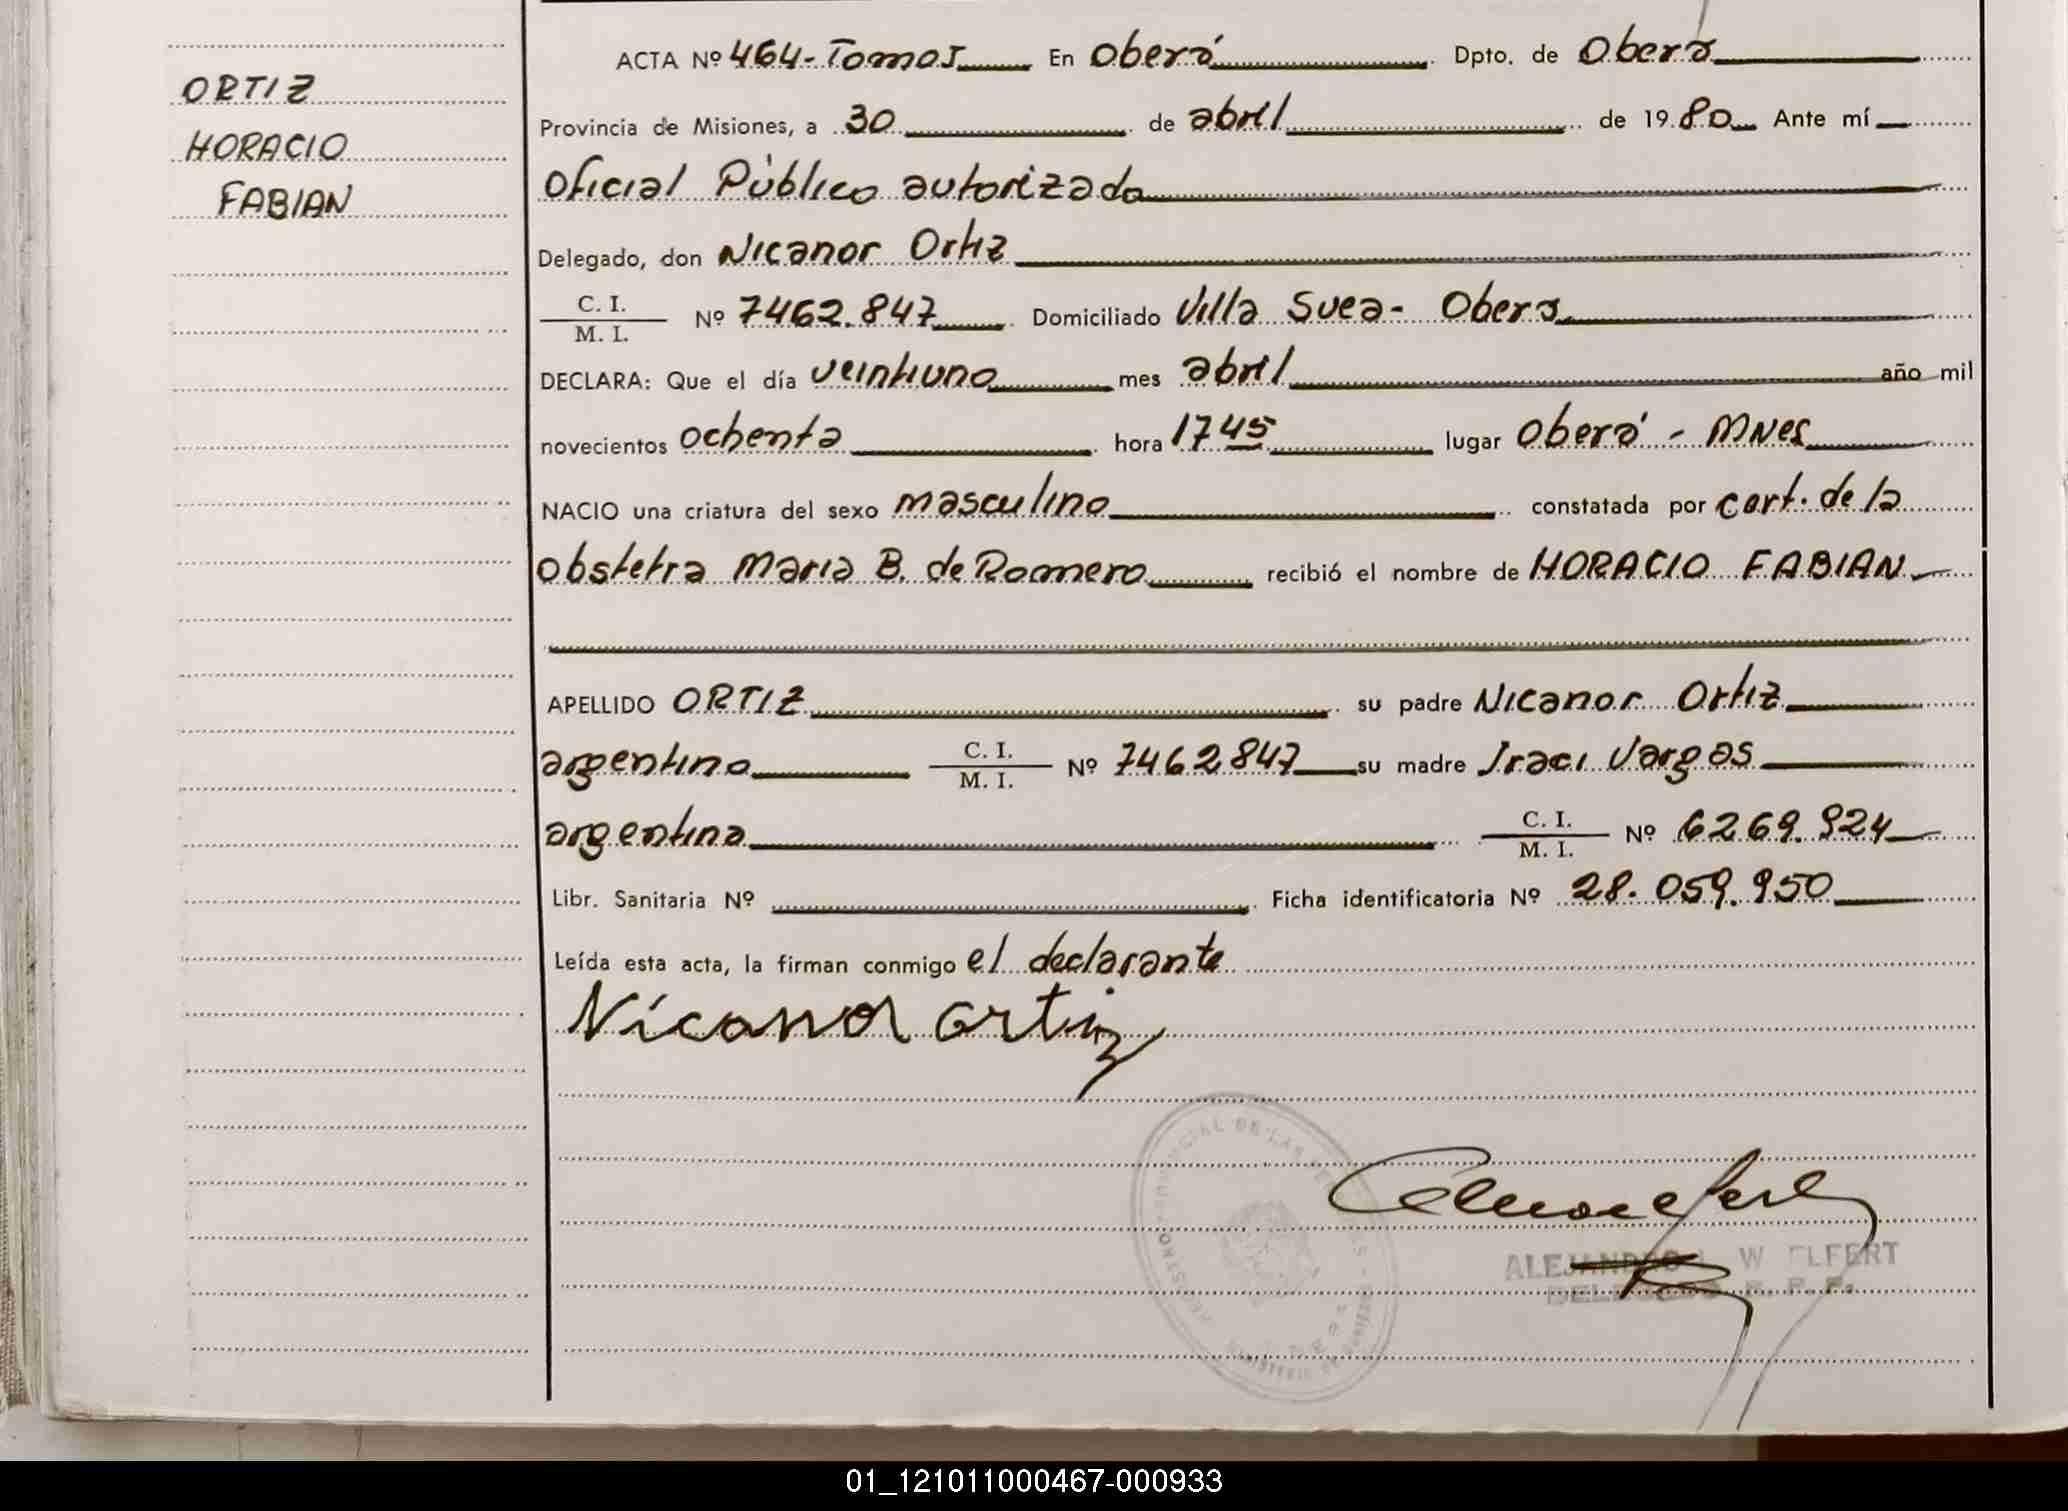 ORTIZ
HORACIO
FABIAN
ACTA Nº 464- Tomo I En Oberá Dpto. de Oberá
Provincia de Misiones, a 30 de abril de 1980 Ante mí
Oficial Público autorizado
Delegado, don Nicanor Ortiz
C. I.
M. I.
Nº 7462.847 Domiciliado Villa Svea- Obera
DECLARA: Que el día veintiuno mes abril año mil
novecientos ochenta hora 1745 lugar Oberá - Mnes
NACIO una criatura del sexo masculino constatada por cert. de la
obstetra Maria B. de Romero recibió el nombre de HORACIO FABIAN
APELLIDO ORTIZ su padre Nicanor Ortiz
argentino C. I.
M. I.
Nº 7462847 su madre Iraci Vargas
argentina C. I.
M. I.
Nº 6269.924
Libr. Sanitaria Nº Ficha identificatoria Nº 28.059.950
Leída esta acta, la firman conmigo el declarante
Nicanor Ortiz
ALEJANDRO W ELFERT
01_121011000467-000933